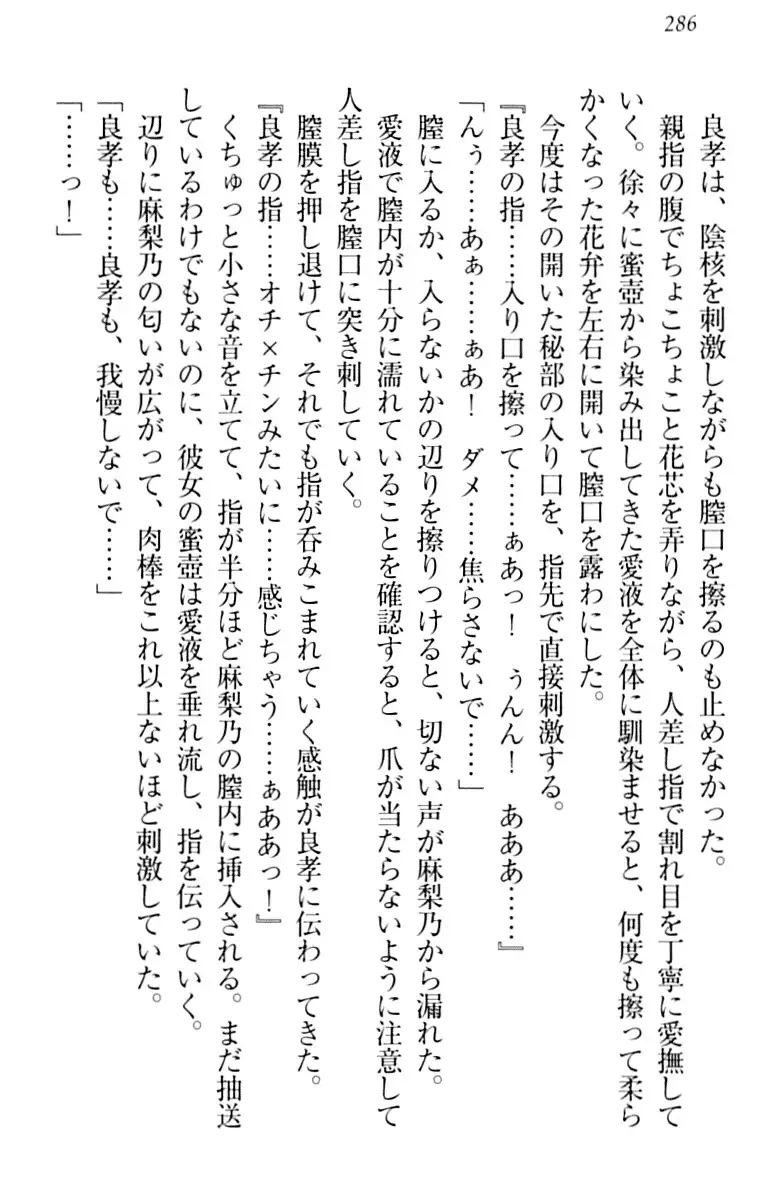 286
良孝は、陰核を刺激しながらも膣口を擦るのも止めなかった。
親指の腹でちょこちょこと花芯を弄りながら、人差し指で割れ目を丁寧に愛撫して
いく。徐々に蜜壺から染み出してきた愛液を全体に馴染ませると、何度も擦って柔ら
かくなった花弁を左右に開いて膣口を露わにした。
今度はその開いた秘部の入り口を、指先で直接刺激する。
『良孝の指……入り口を擦って……ぁあっ！　うんん！　あああ……』
「んぅ……あぁ……ぁあ！　ダメ……焦らさないで……」
膣に入るか、入らないかの辺りを擦りつけると、切ない声が麻梨乃から漏れた。
愛液で膣内が十分に濡れていることを確認すると、爪が当たらないように注意して
人差し指を膣口に突き刺していく。
膣膜を押し退けて、それでも指が呑みこまれていく感触が良孝に伝わってきた。
『良孝の指……オチ×チンみたいに……感じちゃう……ぁああっ！』
くちゅっと小さな音を立てて、指が半分ほど麻梨乃の膣内に挿入される。まだ抽送
しているわけでもないのに、彼女の蜜壺は愛液を垂れ流し、指を伝っていく。
辺りに麻梨乃の匂いが広がって、肉棒をこれ以上ないほど刺激していた。
「良孝も……良孝も、我慢しないで……」
「……っ！」